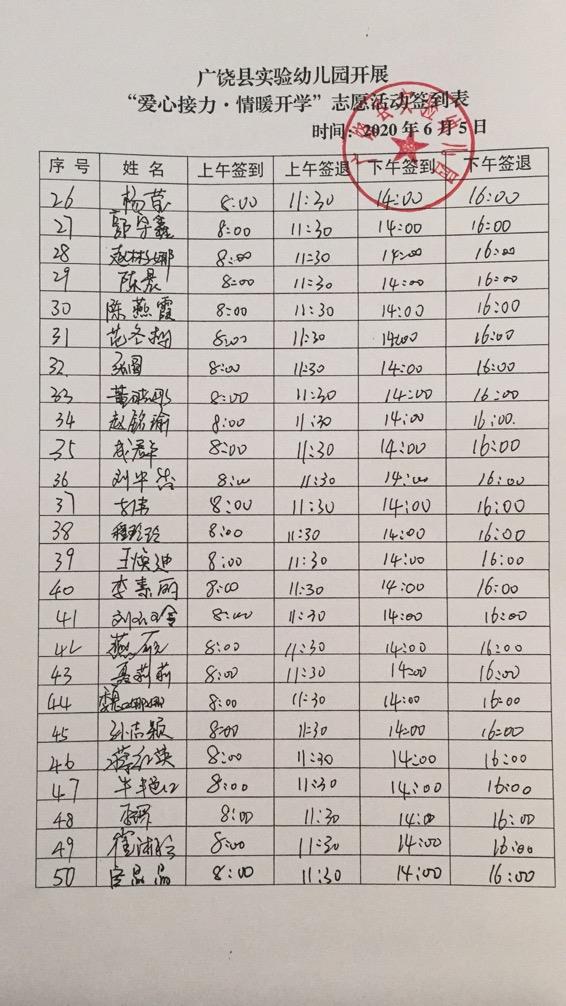 广饶县实验幼儿园开展
“爱心接力·情暖开学”志愿活动签到表
时间：2020年6月5日
序号 姓名 上午签到 上午签退 下午签到 下午签退
26 杨 8:00 11:30 14:00 16:00
27 郭 鑫 8:00 11:30 14:00 16:00
28 赵彬娜 8:00 11:30 14:00 16:00
29 陈晨 8:00 11:30 14:00 16:00
30 陈燕霞 8:00 11:30 14:00 16:00
31 范冬梅 8:00 11:30 14:00 16:00
32. 8:00 11:30 14:00 16:00
33 董 8:00 11:30 14:00 16:00
34 赵铭瑜 8:00 11:30 14:00 16:00.
35 8:00 11:30 14:00 16:00
36 刘华 8:00 11:30 14:00 16:00
37 8:00 11:30 14:00 16:00
38 程玲玲 8:00 11:30 14:00 16:00
39 王焕迪 8:00 11:30 14:00 16:00
40 李素丽 8:00 11:30 14:00 16:00
41 刘 8:00 11:30 14:00 16:00
42 燕 8:00 11:30 14:00 16:00
43 聂莉莉 8:00 11:30 14:00 16:00
44 魏娜娜 8:00 11:30 14:00 16:00
45 孙志颖 8:00 11:30 14:00 16:00
46 蒋红英 8:00 11:30 14:00 16:00
47 牛艳红 8:00 11:30 14:00 16:00
48 8:00 11:30 14:00 16:00
49 崔 8:00 11:30 14:00 16:00
50 宫晶晶 8:00 11:30 14:00 16:00
广饶县实验幼儿园